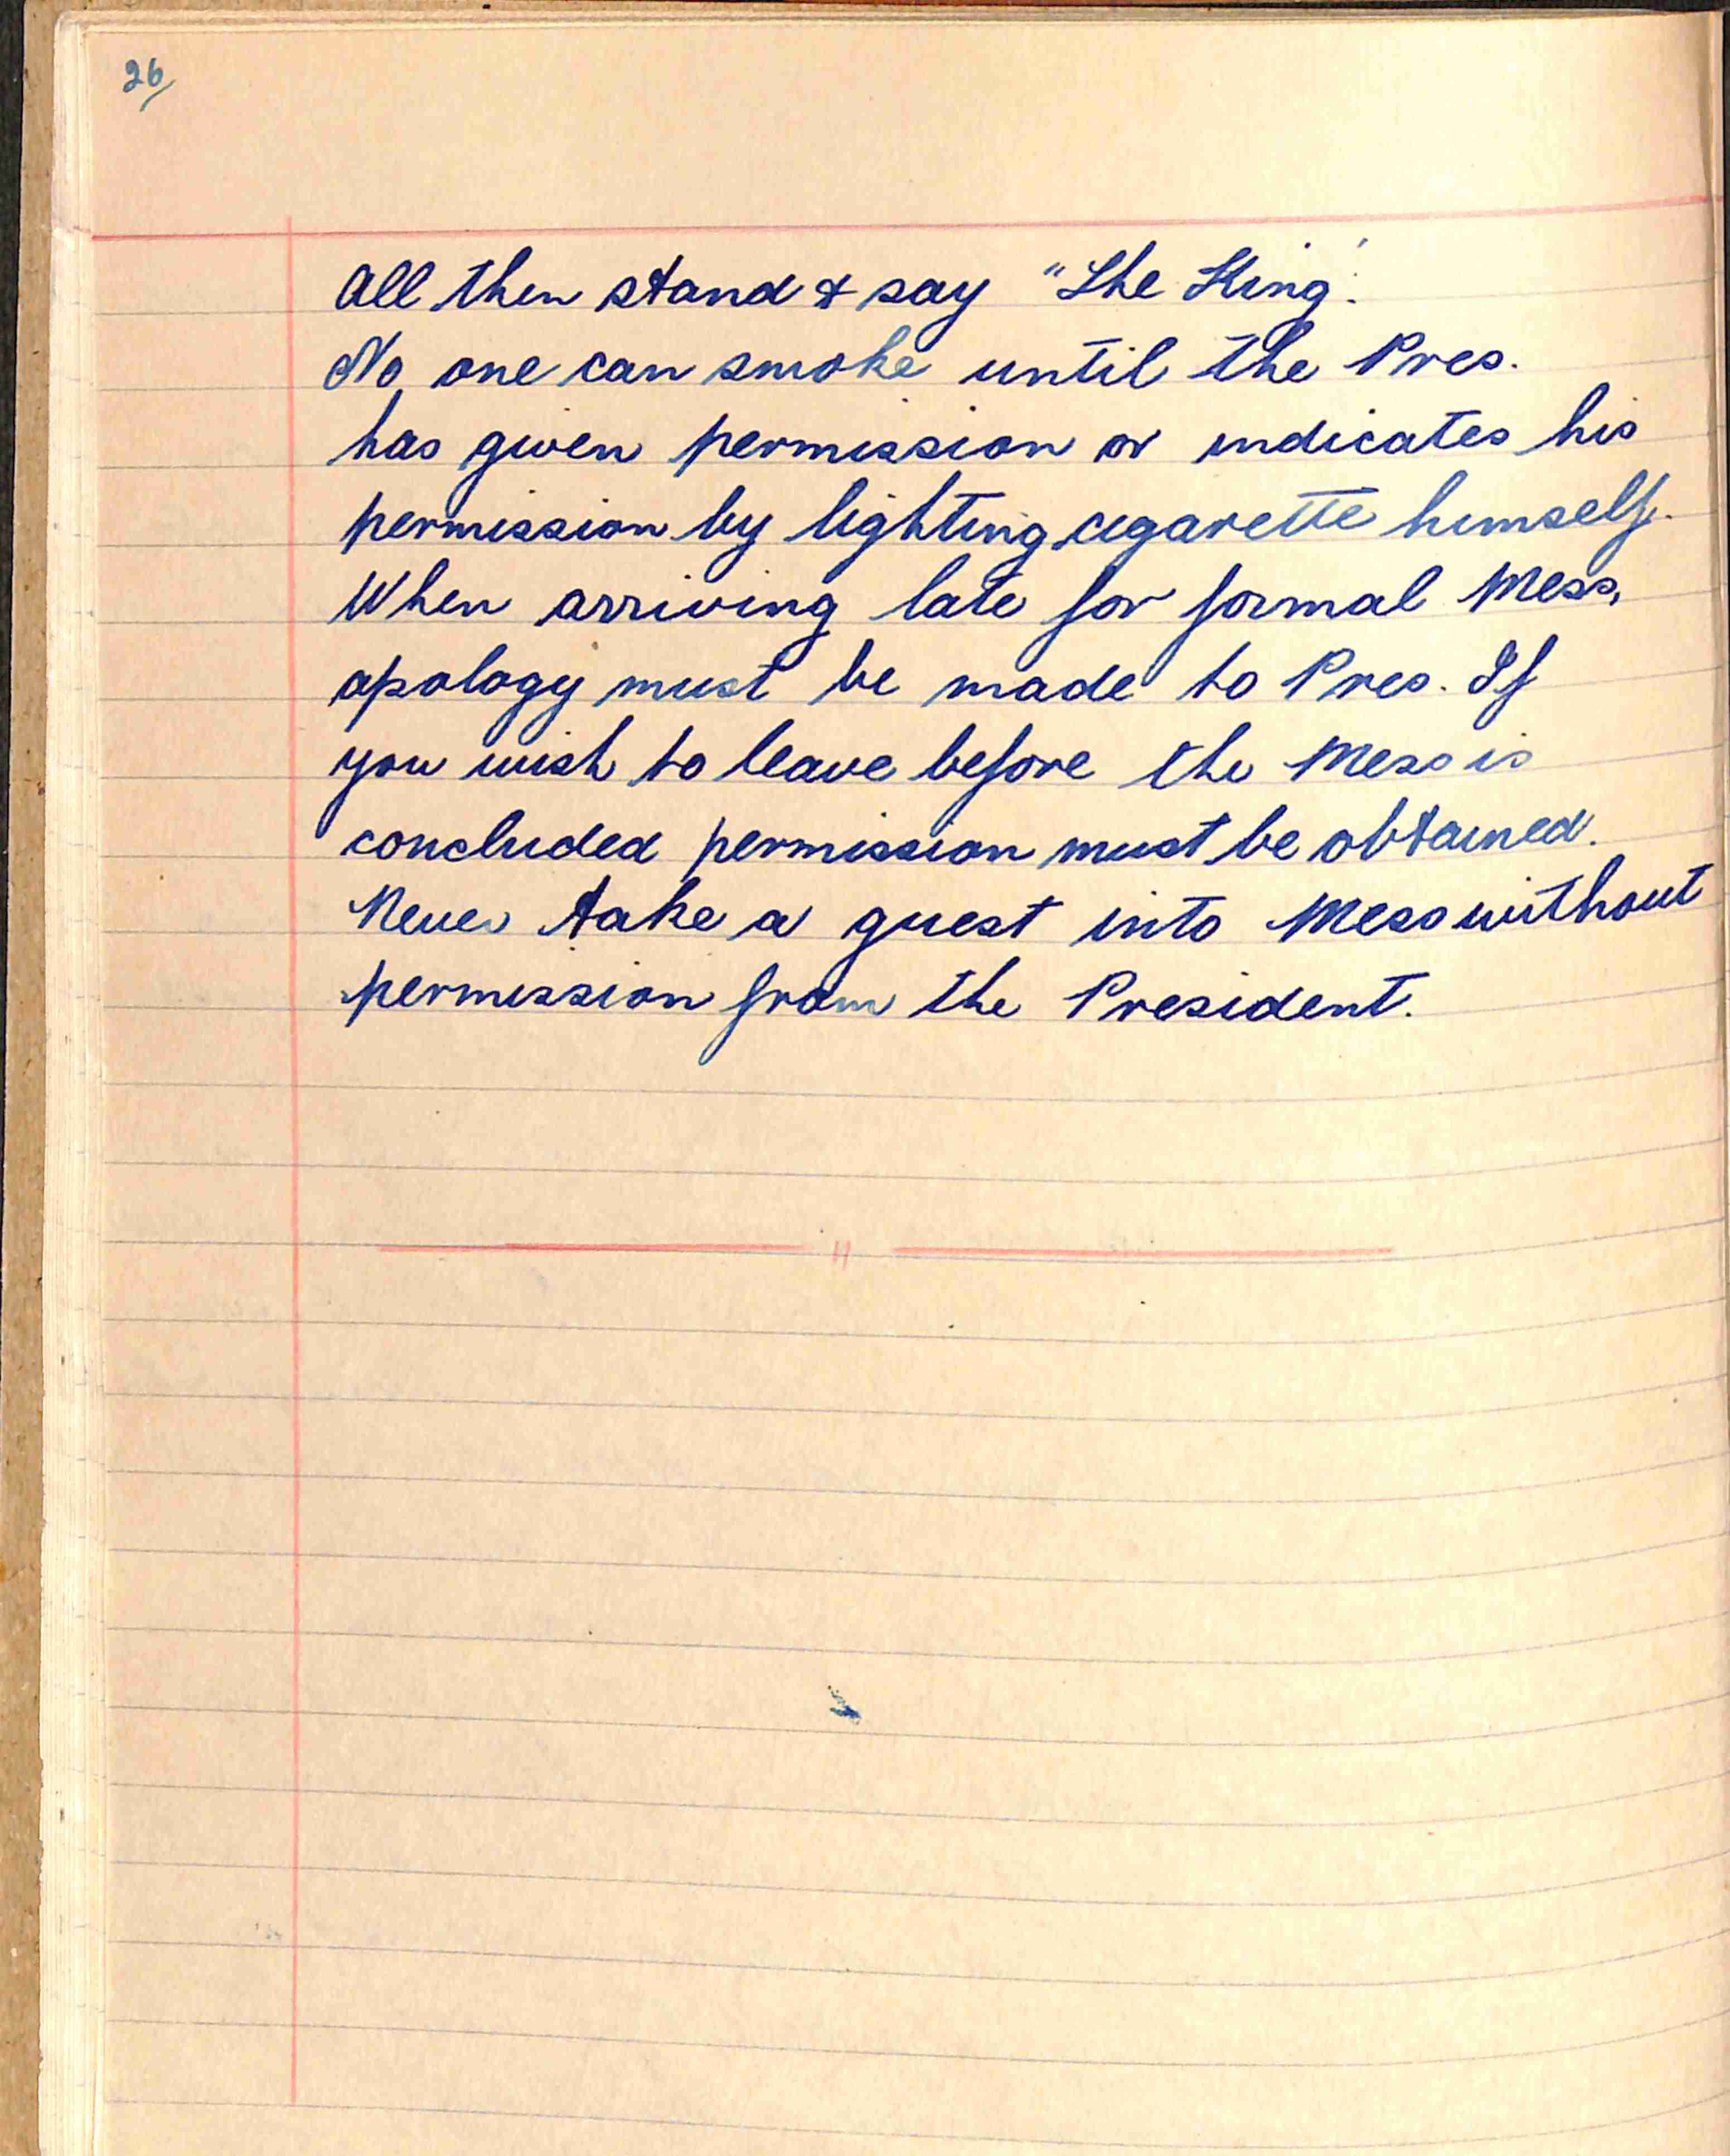 26/
All then stand & say "The King".
No one can smoke until the Pres.
has given permission or indicates his
permission by lighting cigarette himself.
When arriving late for formal Mess,
apology must be made to Pres. If
you wish to leave before the Mess is
concluded permission must be obtained.
Never take a guest into Mess without
permission from the President.
"